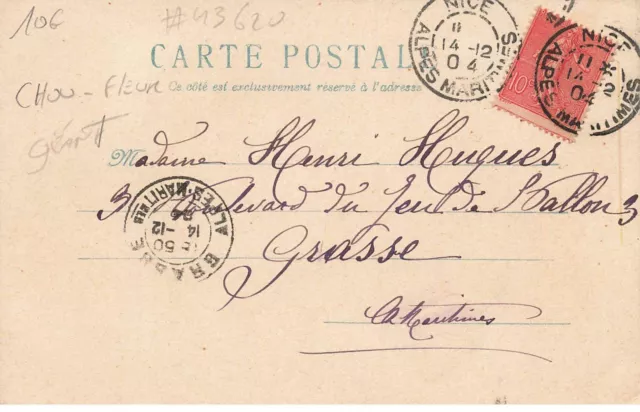 10€
#43620
CARTE POSTAL
Ce côté est exclusivement réservé à l'adresse
CHOU-FLEUR
géant
NICE
11
14 -12
04
ALPES MARITIMES
10
NICE
11
14 12
04
Madame Henri Hugues
3 Boulevard du Jeu de Ballon 3
Grasse
A Maritimes
GRASSE
50
14 -12
ALPES-MARITIMES